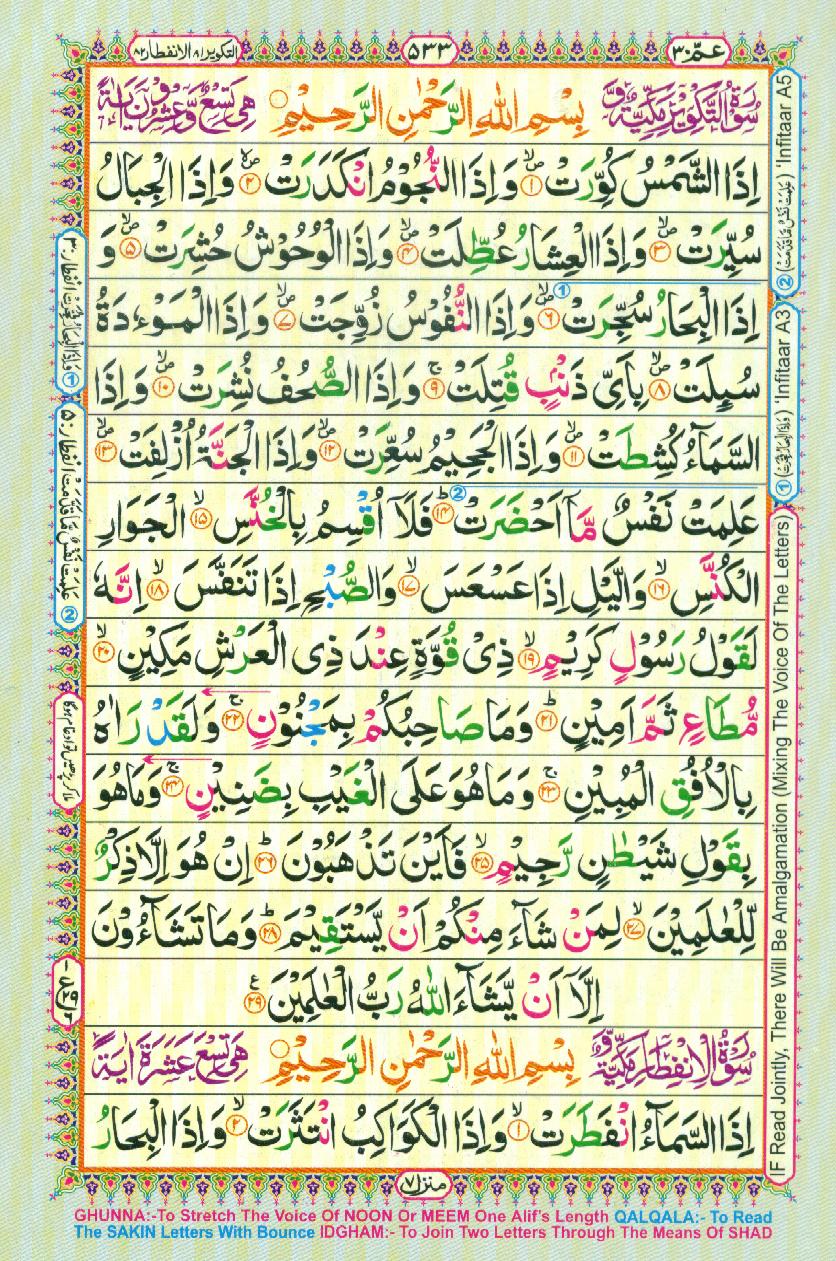 عمّ ٣٠
٥٣٣
التكوير ٨١ الانفطار ٨٢
سُوْرَةُ التَّكْوِيْرِ مَكِّيَّةٌ وَّ بِسْمِ اللهِ الرَّحْمٰنِ الرَّحِيْمِ ۝ هِيَ تِسْعٌ وَّعِشْرُوْنَ اٰيَةً
اِذَا الشَّمْسُ كُوِّرَتْ ۙ۝۱ وَاِذَا النُّجُوْمُ انْكَدَرَتْ ۝۲ وَاِذَا الْجِبَالُ
سُيِّرَتْ ۙ۝۳ وَاِذَا الْعِشَارُ عُطِّلَتْ ۙ۝۴ وَاِذَا الْوُحُوْشُ حُشِرَتْ ۙ۝۵ وَ
اِذَا الْبِحَارُ سُجِّرَتْ ۙ۝۶ ① وَاِذَا النُّفُوْسُ زُوِّجَتْ ۙ۝۷ وَاِذَا الْمَوْءٗدَةُ
سُىِٕلَتْ ۙ۝۸ بِاَىِّ ذَنْۢبٍ قُتِلَتْ ۚ۝۹ وَاِذَا الصُّحُفُ نُشِرَتْ ۙ۝۱۰ وَاِذَا
السَّمَآءُ كُشِطَتْ ۙ۝۱۱ وَاِذَا الْجَحِيْمُ سُعِّرَتْ ۙ۝۱۲ وَاِذَا الْجَنَّةُ اُزْلِفَتْ ۙ۝۱۳
عَلِمَتْ نَفْسٌ مَّاۤ اَحْضَرَتْ ؕ۝۱۴ ② فَلَاۤ اُقْسِمُ بِالْخُنَّسِ ۙ۝۱۵ الْجَوَارِ
الْكُنَّسِ ۙ۝۱۶ وَالَّيْلِ اِذَا عَسْعَسَ ۙ۝۱۷ وَالصُّبْحِ اِذَا تَنَفَّسَ ۙ۝۱۸ اِنَّهٗ
لَقَوْلُ رَسُوْلٍ كَرِيْمٍ ۙ۝۱۹ ذِىْ قُوَّةٍ عِنْدَ ذِى الْعَرْشِ مَكِيْنٍ ۙ۝۲۰
مُّطَاعٍ ثَمَّ اَمِيْنٍ ؕ۝۲۱ وَمَا صَاحِبُكُمْ بِمَجْنُوْنٍ ۚ۝۲۲ وَلَقَدْ رَاٰهُ
بِالْاُفُقِ الْمُبِيْنِ ۚ۝۲۳ وَمَا هُوَ عَلَى الْغَيْبِ بِضَنِيْنٍ ۚ۝۲۴ وَمَا هُوَ
بِقَوْلِ شَيْطٰنٍ رَّجِيْمٍ ۙ۝۲۵ فَاَيْنَ تَذْهَبُوْنَ ؕ۝۲۶ اِنْ هُوَ اِلَّا ذِكْرٌ
لِّلْعٰلَمِيْنَ ۙ۝۲۷ لِمَنْ شَآءَ مِنْكُمْ اَنْ يَّسْتَقِيْمَ ؕ۝۲۸ وَمَا تَشَآءُوْنَ
اِلَّاۤ اَنْ يَّشَآءَ اللّٰهُ رَبُّ الْعٰلَمِيْنَ ۝۲۹
سُوْرَةُ الْاِنْفِطَارِ مَكِّيَّةٌ وَّ بِسْمِ اللهِ الرَّحْمٰنِ الرَّحِيْمِ ۝ هِيَ تِسْعَ عَشْرَةَ اٰيَةً
اِذَا السَّمَآءُ انْفَطَرَتْ ۙ۝۱ وَاِذَا الْكَوَاكِبُ انْتَثَرَتْ ۙ۝۲ وَاِذَا الْبِحَارُ
منزل ٧
IF Read Jointly, There Will Be Amalgamation (Mixing The Voice Of The Letters) ① 'Infitaar A3 ② 'Infitaar A5
GHUNNA:-To Stretch The Voice Of NOON Or MEEM One Alif's Length QALQALA:- To Read
The SAKIN Letters With Bounce IDGHAM:- To Join Two Letters Through The Means Of SHAD